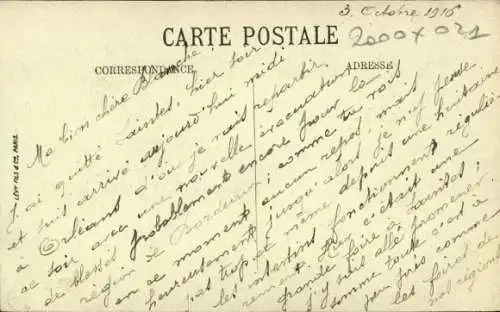 3. Octobre 1916
CARTE POSTALE
2000 x 021
CORRESPONDANCE
ADRESSE
LÉVY FILS & Cie, PARIS
Ma bien chère Blanche
J'ai quitté Saintes, hier soir
et suis arrivé aujourd'hui midi
à Orléans d'où je vais repartir
ce soir avec une nouvelle évacuation
de blessés probablement encore pour la
région de Bordeaux ; comme tu vois
en ce moment aucun repos, mais
heureusement jusqu'alors je n'y pense
pas trop et même depuis une huitaine
les intestins fonctionnent réguliè-
rement. Hier c'était une
grande foire à Saintes ;
j'y suis allé promener
somme toute c'est à
peu près comme
les foires de
nos régions